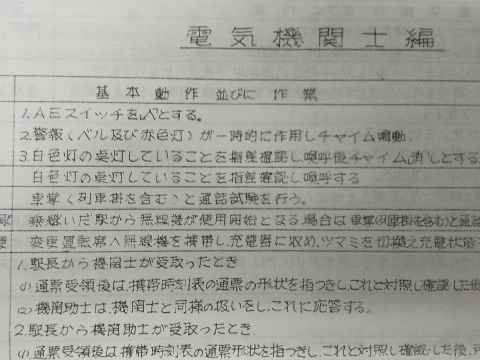 電気機関士編
基本動作 並びに 作業
1.AEスイッチを"入"とする。
2.警報(ベル及び赤色灯)が一時的に作用しチャイム鳴動
3.白色灯の点灯していることを指差確認し喚呼後チャイム"消"しとする
白色灯の点灯していることを指差確認し喚呼する
車掌(列車掛を含む)と通話試験を行う。
乗継いだ駅から無線機が使用開始となる場合は車掌(列車掛を含む)と通話
変更運転席へ無線機を携帯し、充電器に収め、ツマミを切換え充電状態
1.駅長から機関士が受取ったとき
(1).通票受領後は、携帯時刻表の通票の形状を指つきし、これと対照し確認した後
(2).機関助士は、機関士と同様の扱いをし、これに応答する。
2.駅長から機関助士が受取ったとき.
(1)通票受領後は携帯時刻表の通票形状を指つきし、これと対照し確認した後、